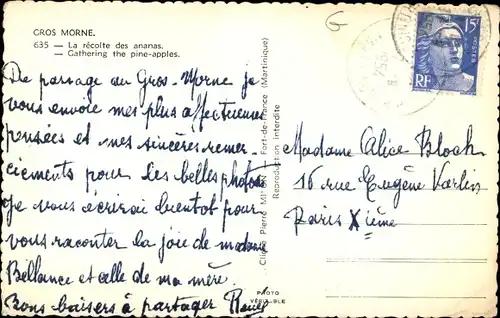 GROS MORNE.
635 - La récolte des ananas.
- Gathering the pine-apples.
De passage au Gros-Morne je
vous envoie mes plus affectueuses
pensées et mes sincères remer
ciements pour les belles photos
Je vous écrirai bientôt pour
vous raconter la joie de madame
Bellance et celle de ma mère.
Bons baisers à partager
Cliché Pierre Fort-de-France (Martinique)
Reproduction interdite
PHOTO
VÉRITABLE
15F
RF
Madame Alice Bloch
16 rue Eugène Varlin
Paris Xième